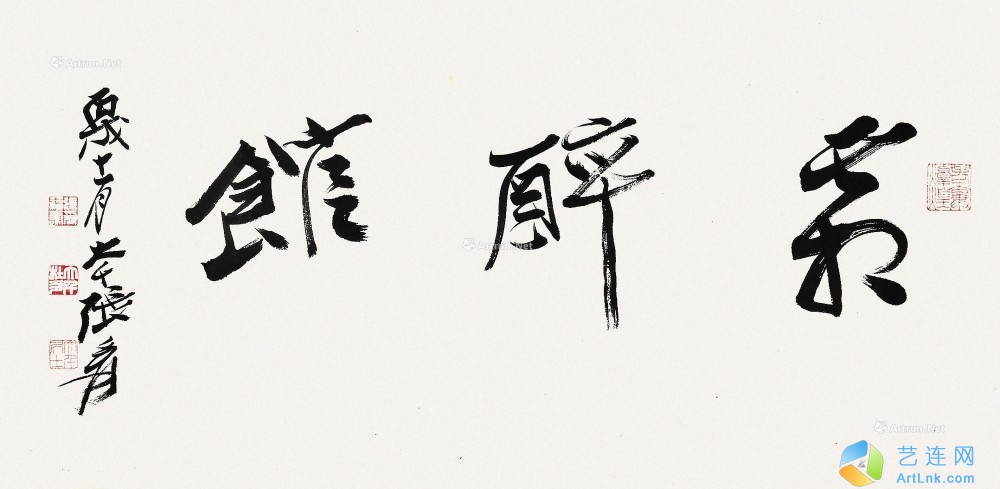 霜醉館
十一月大千張爰
Artron.Net
Artron.Net
Artron.Net
艺连网
ArtLnk.com